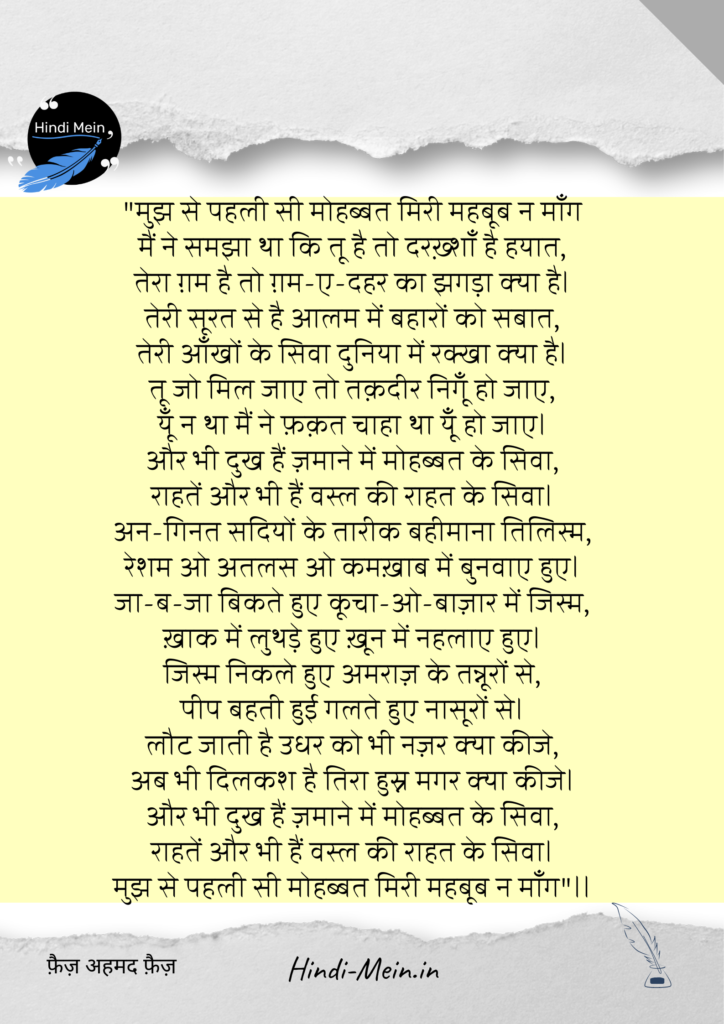 Hindi Mein
"मुझ से पहली सी मोहब्बत मिरी महबूब न माँग
मैं ने समझा था कि तू है तो दरख़्शाँ है हयात,
तेरा ग़म है तो ग़म-ए-दहर का झगड़ा क्या है।
तेरी सूरत से है आलम में बहारों को सबात,
तेरी आँखों के सिवा दुनिया में रक्खा क्या है।
तू जो मिल जाए तो तक़दीर निगूँ हो जाए,
यूँ न था मैं ने फ़क़त चाहा था यूँ हो जाए।
और भी दुख हैं ज़माने में मोहब्बत के सिवा,
राहतें और भी हैं वस्ल की राहत के सिवा।
अन-गिनत सदियों के तारीक बहीमाना तिलिस्म,
रेशम ओ अतलस ओ कमख़ाब में बुनवाए हुए।
जा-ब-जा बिकते हुए कूचा-ओ-बाज़ार में जिस्म,
ख़ाक में लुथड़े हुए ख़ून में नहलाए हुए।
जिस्म निकले हुए अमराज़ के तन्नूरों से,
पीप बहती हुई गलते हुए नासूरों से।
लौट जाती है उधर को भी नज़र क्या कीजे,
अब भी दिलकश है तिरा हुस्न मगर क्या कीजे।
और भी दुख हैं ज़माने में मोहब्बत के सिवा,
राहतें और भी हैं वस्ल की राहत के सिवा।
मुझ से पहली सी मोहब्बत मिरी महबूब न माँग"।।
फ़ैज़ अहमद फ़ैज़
Hindi-Mein.in